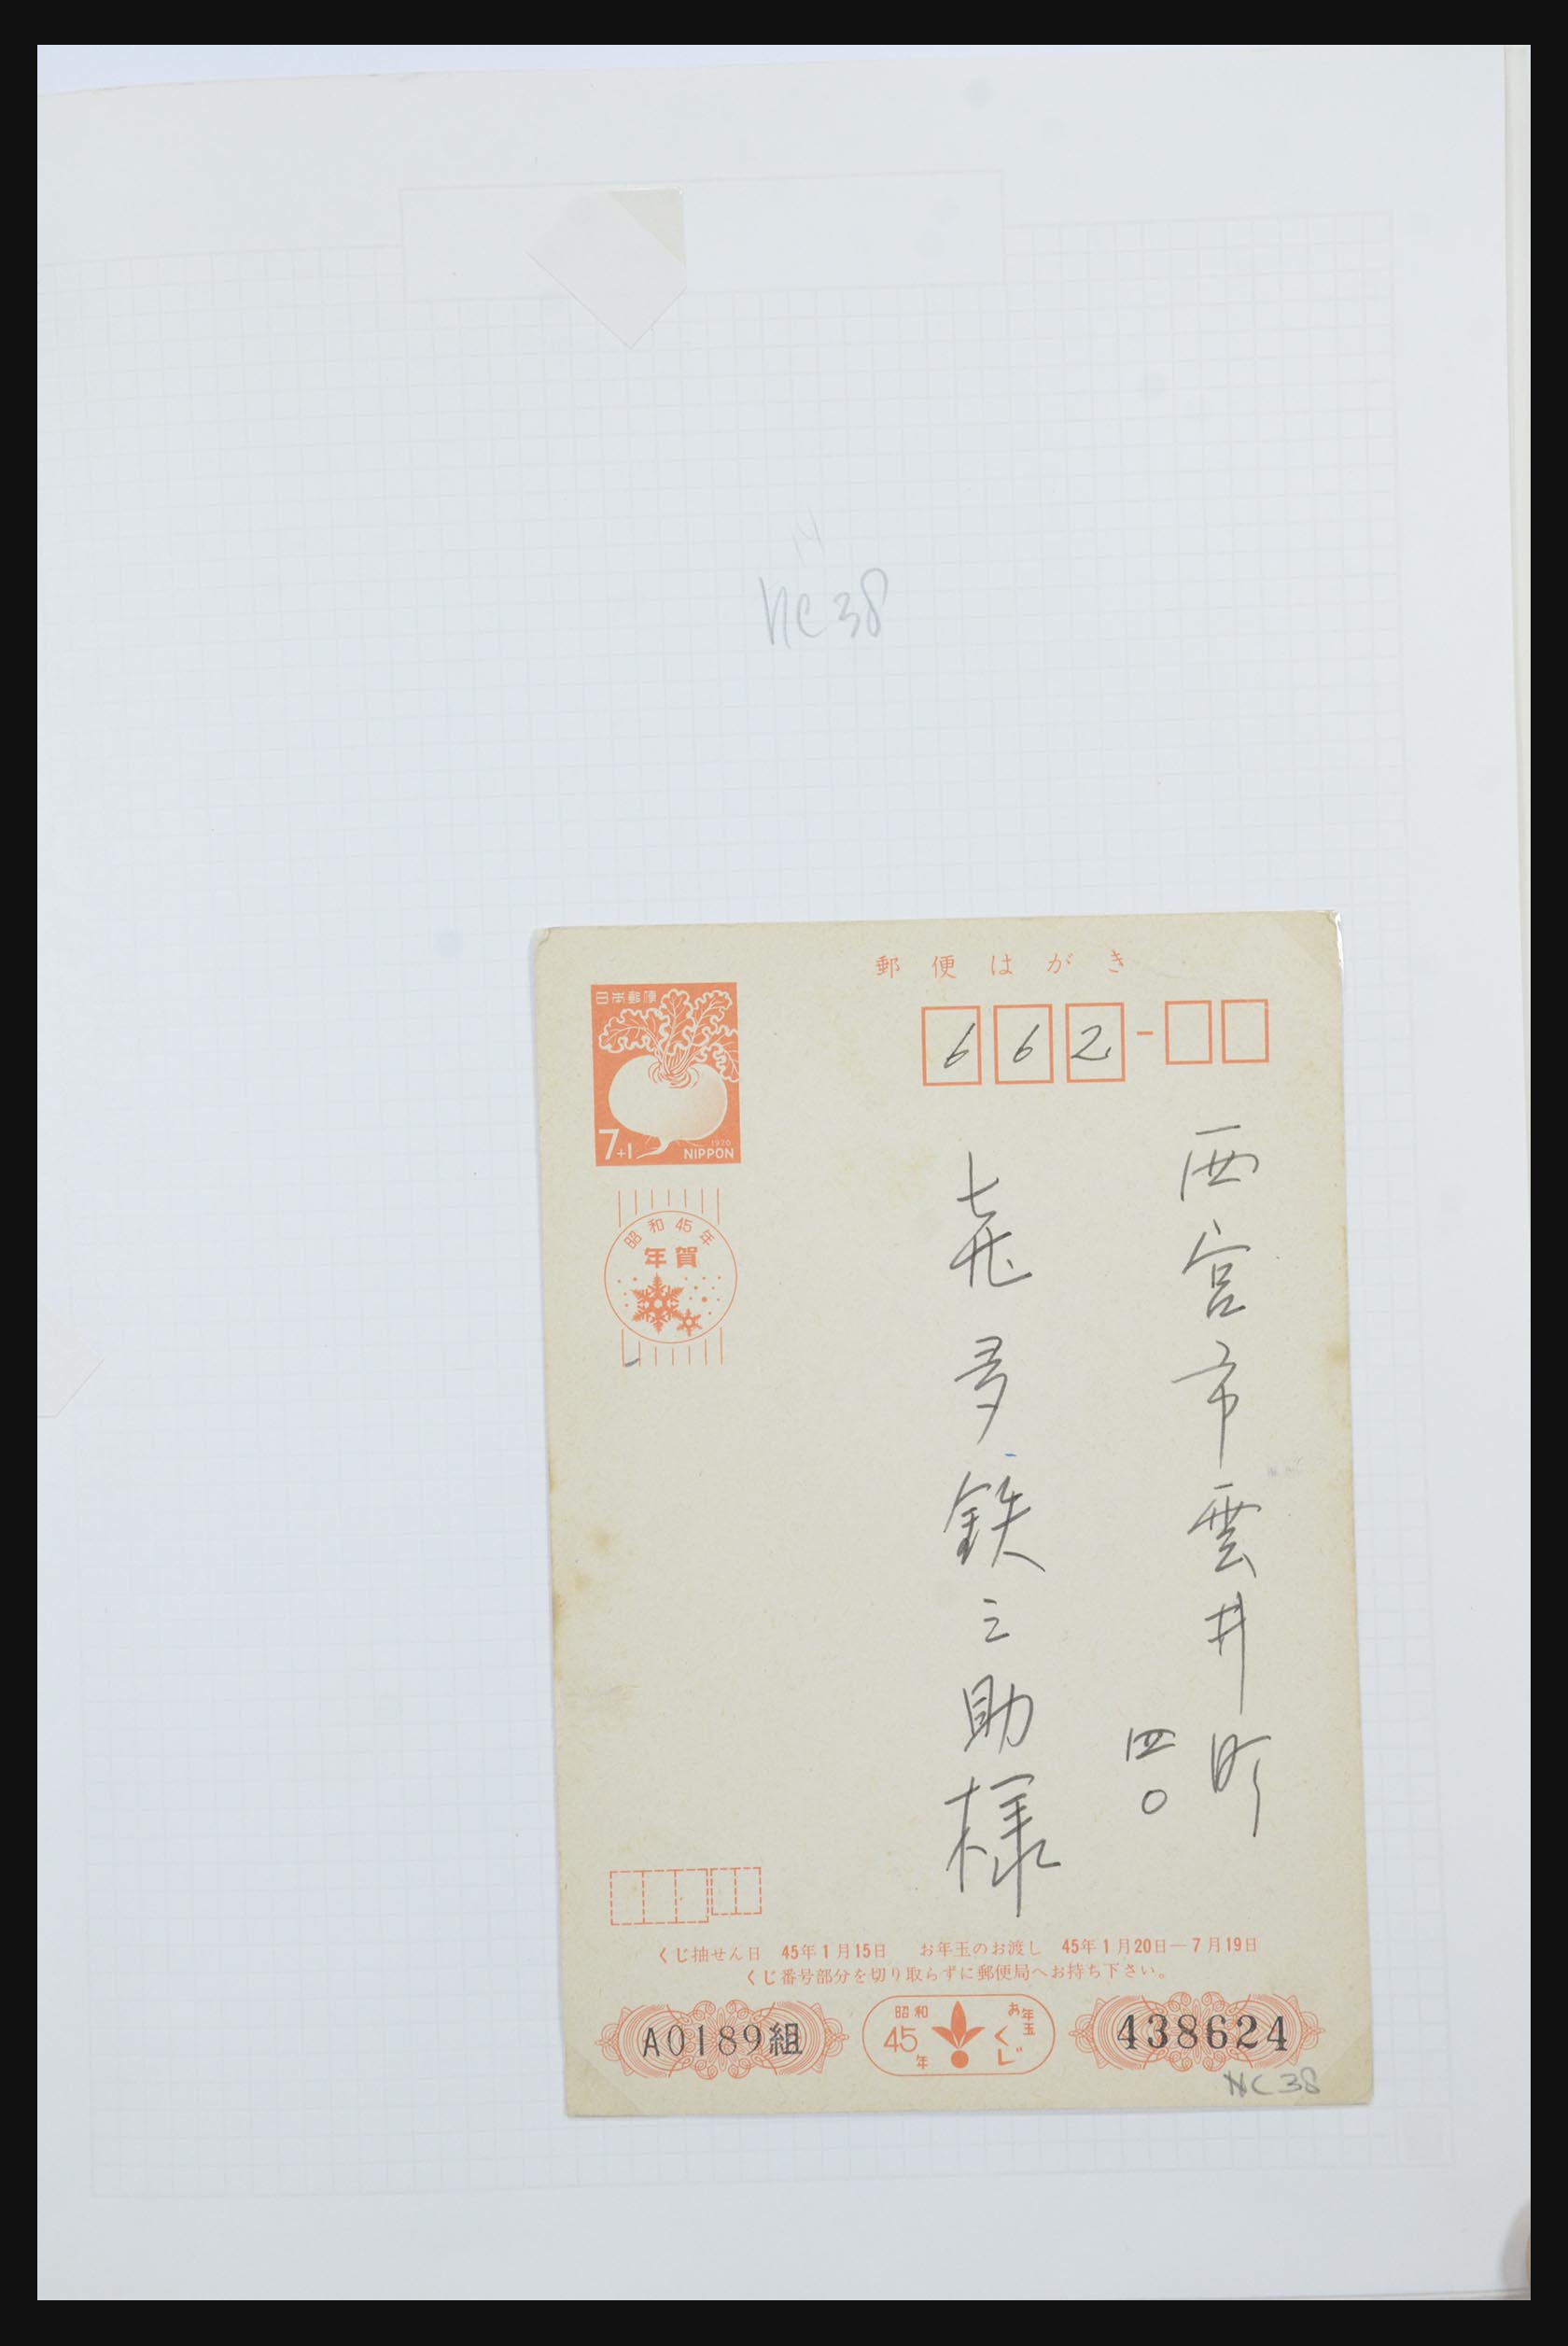 NC38
郵便はがき
日本郵便
7+1
1970
NIPPON
662-
西宮市雲井町
四〇
㐂多鉄之助様
昭和45年
年賀
くじ抽せん日 45年1月15日 お年玉のお渡し 45年1月20日—7月19日
くじ番号部分を切り取らずに郵便局へお持ち下さい。
A0189組
昭和
45年
お年玉
くじ
438624
NC38